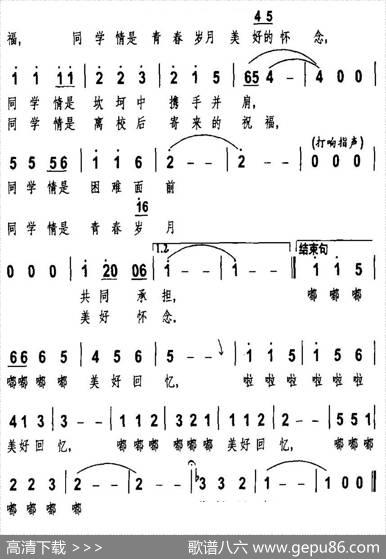 4 5
福, 同 学 情 是 青 春 岁 月 美 好 的 怀 念,
1 1 11 | 2 2 3 | 2 1 5 | 65 4 - | 4 0 0
同 学 情 是 坎 坷 中 携 手 并 肩,
同 学 情 是 离 校 后 寄 来 的 祝 福,
(打响指声)
5 5 56 | 1 1 6 | 2 - - | 2 - - | 0 0 0
同 学 情 是 困 难 面 前
16
同 学 情 是 青 春 岁 月
1.2. 结束句
0 0 0 | 1 20 06 | 1 - - | 1 - - :‖ 1 1 5
共 同 承 担, 嘟 嘟 嘟
美 好 怀 念.
66 6 5 | 4 5 6 | 5 - - | 1 1 5 | 1 5 6
嘟嘟 嘟 嘟 美 好 回 忆, 啦 啦 啦 啦 啦 啦
4 1 3 | 3 - - | 1 1 2 | 3 2 1 | 1 1 2 | 2 - - | 5 5 1
美 好 回 忆, 嘟嘟嘟 嘟嘟嘟 美 好 回 忆, 嘟嘟嘟
2 2 3 | 2 - - | 2 - - | 3 3 3 | 2 - - | 1 - - | 1 0 0 ‖
嘟 嘟 嘟 嘟
高清下载 >>> 歌谱八六 www.gepu86.com